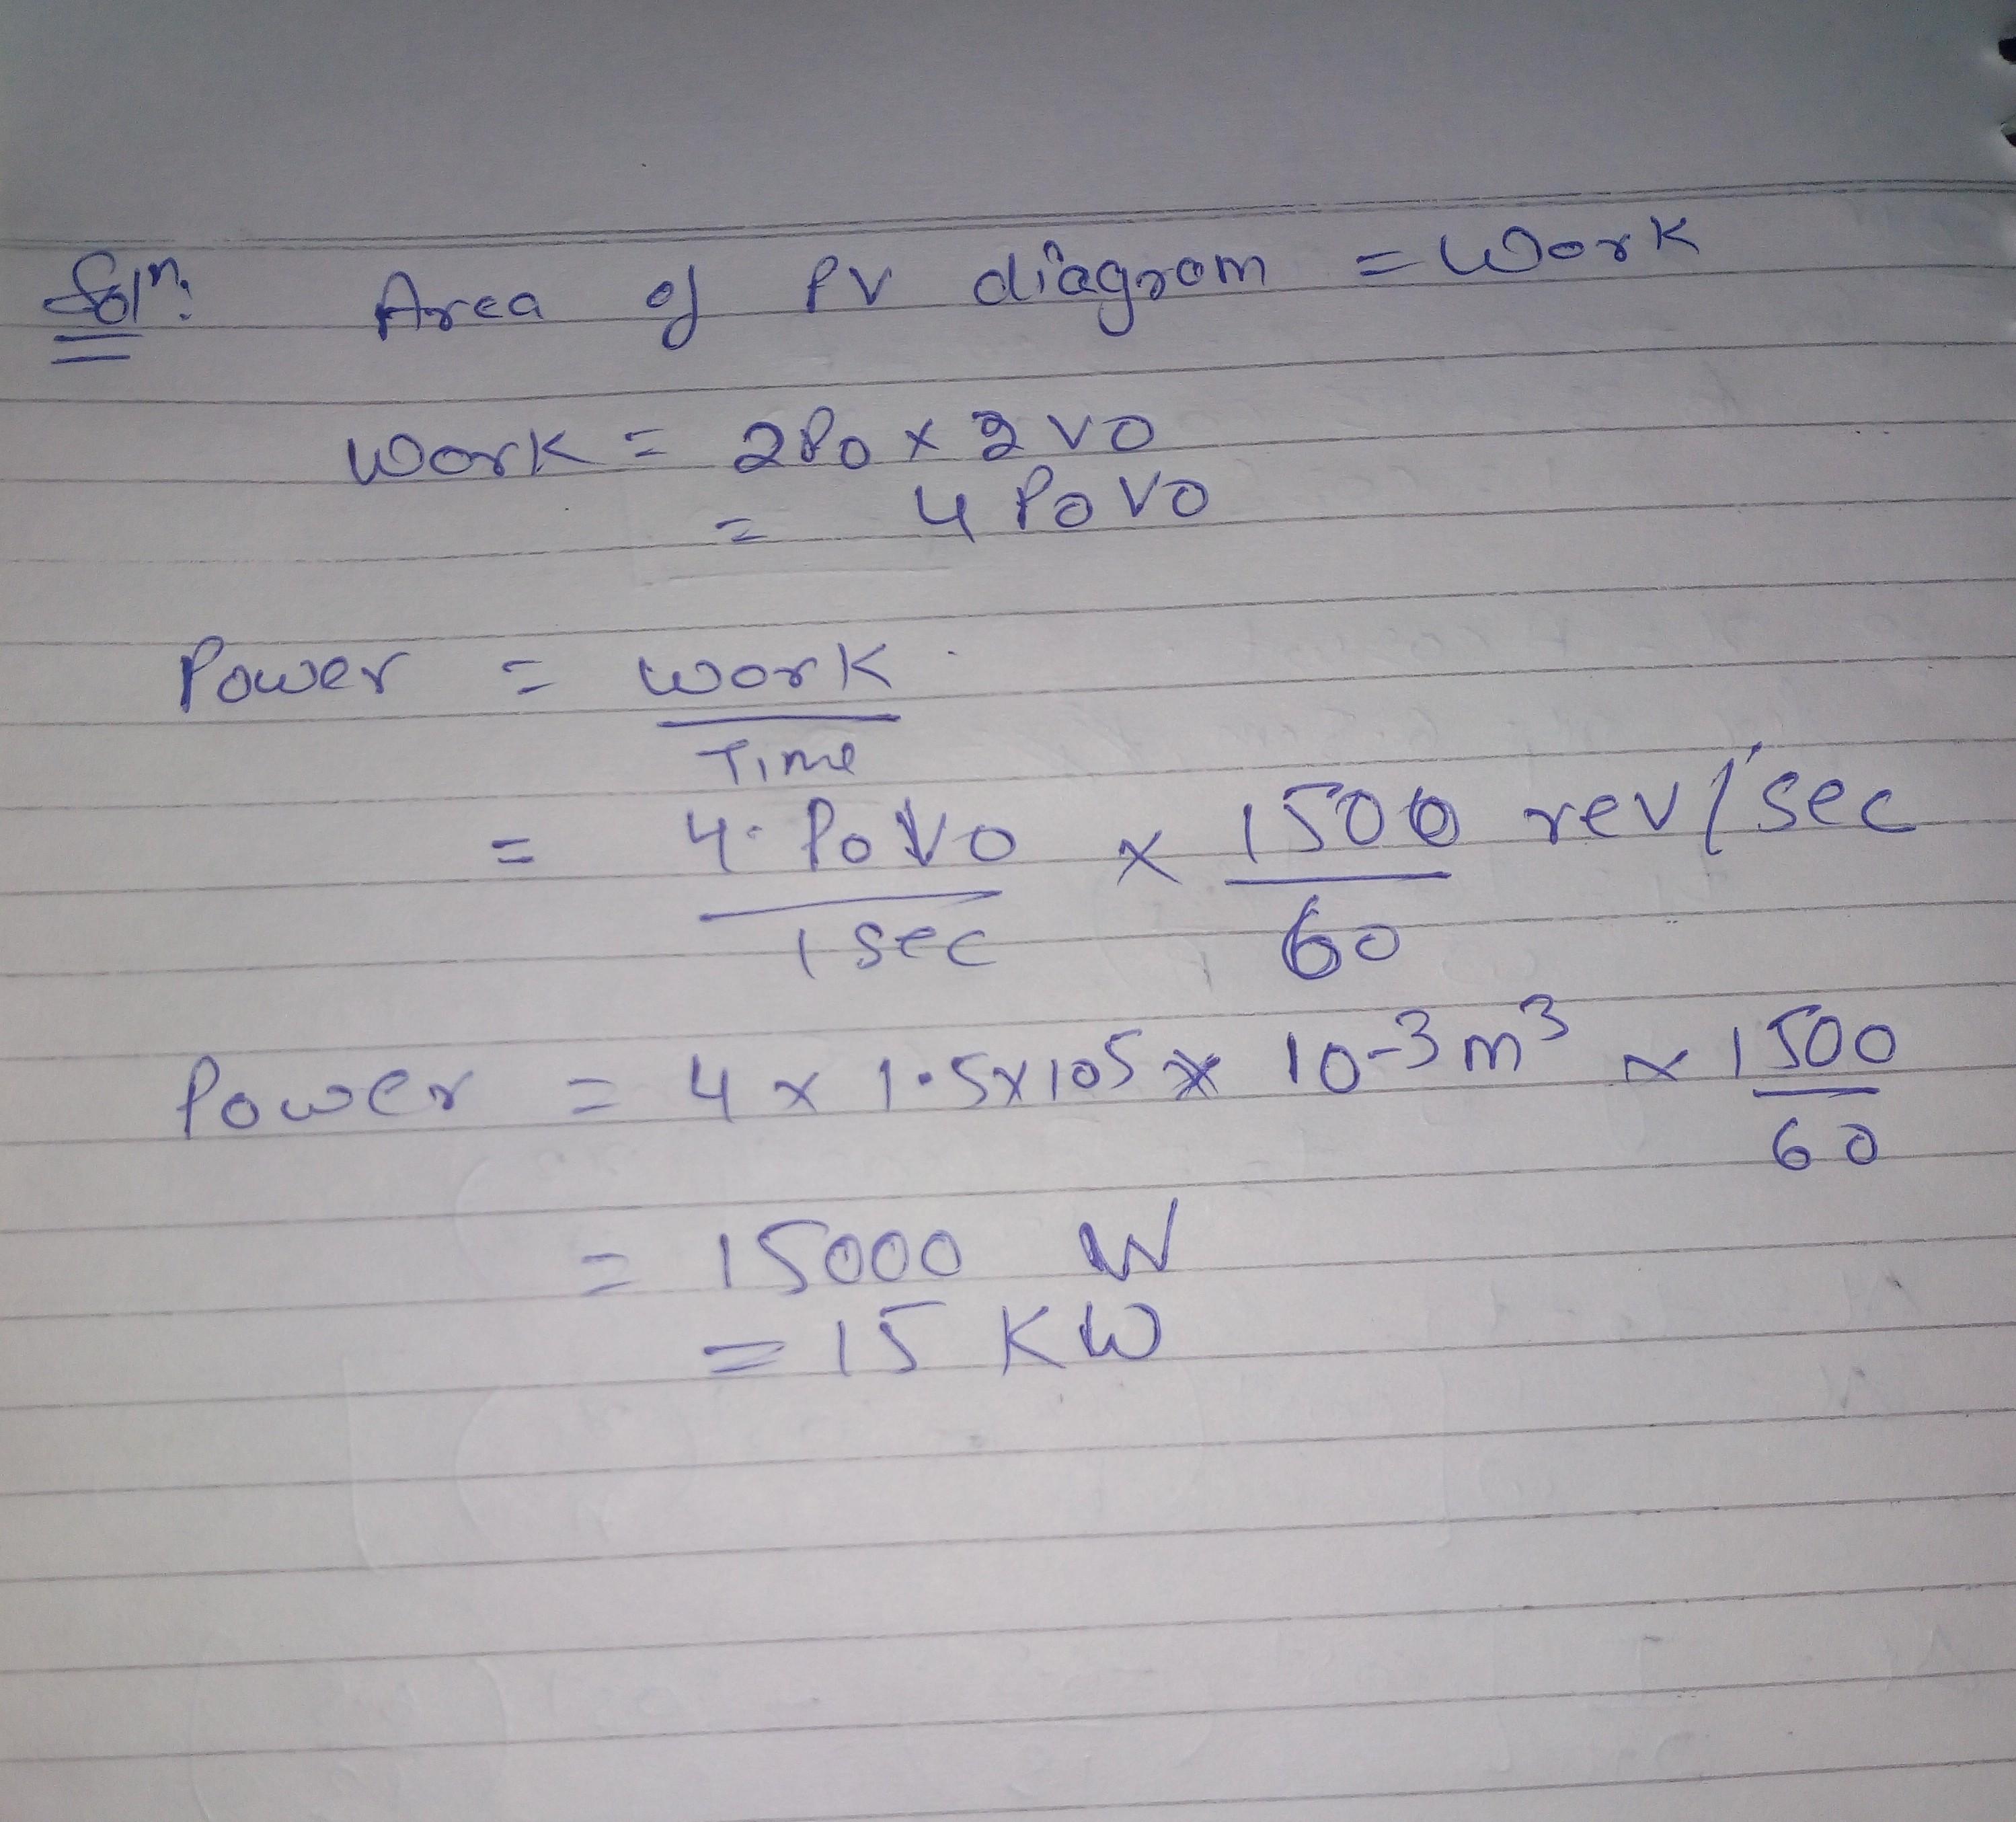 Soln. Area of PV diagram = Work
Work = 2P0 x 2V0
= 4 P0V0
Power = Work
Time
= 4. P0V0 x 1500 rev/sec
1 sec 60
Power = 4 x 1.5x10^5 x 10^-3 m^3 x 1500
60
= 15000 W
= 15 KW